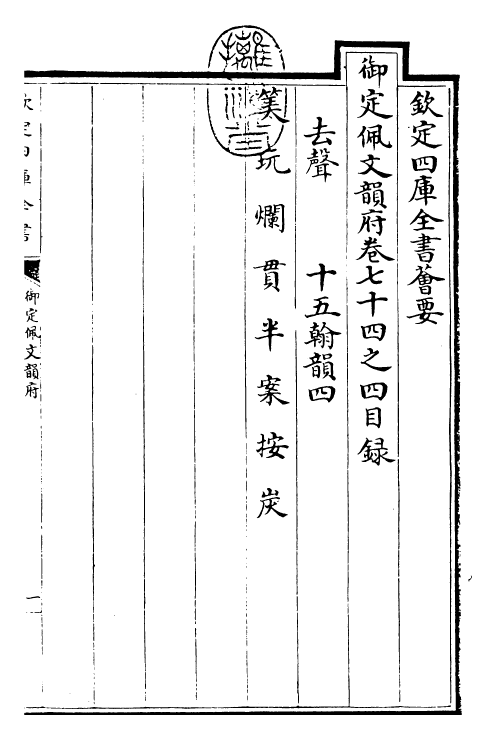 欽定四庫全書薈要
御定佩文韻府卷七十四之四目録
去聲　十五翰韻四
筭玩爛貫半案按炭
欽定四庫全書
御定佩文韻府
一